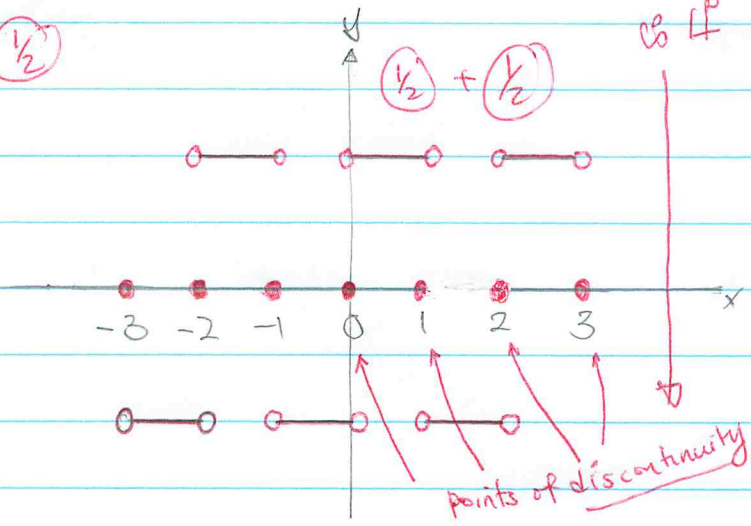 y
1/2
1/2 + 1/2
-3 -2 -1 0 1 2 3 x
points of discontinuity